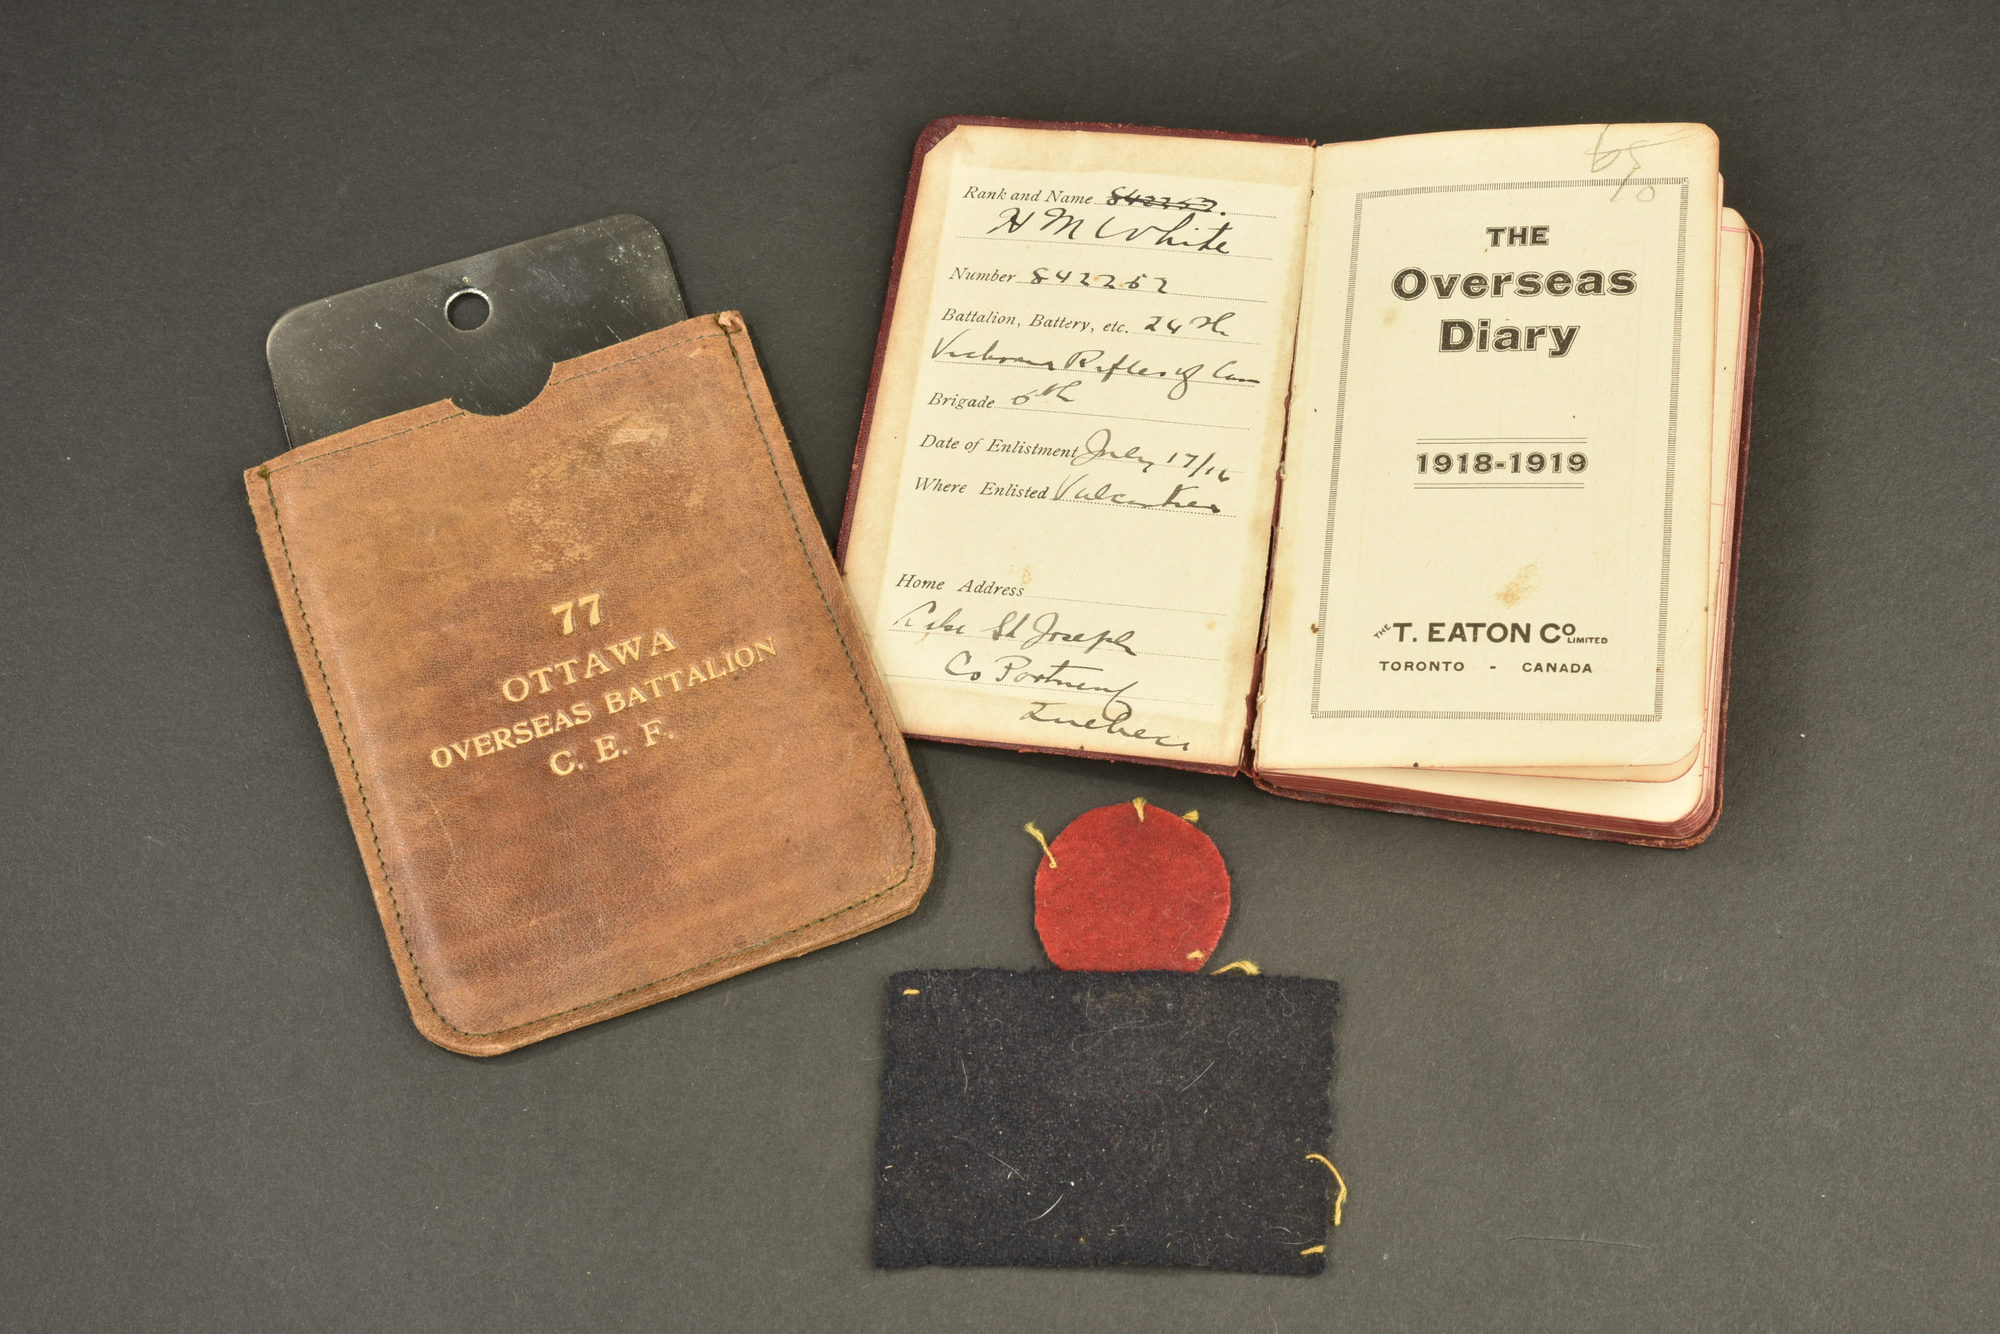 77
OTTAWA
OVERSEAS BATTALION
C. E. F.
Rank and Name 842252.
H M White
Number 842252
Battalion, Battery, etc. 24th
Victoria Rifles of Can
Brigade
Date of Enlistment July 17/16
Where Enlisted Valcartier
Home Address
Lake St Joseph
Co Portneuf
Quebec
65
10
THE
Overseas
Diary
1918-1919
THE T. EATON CO LIMITED
TORONTO - CANADA